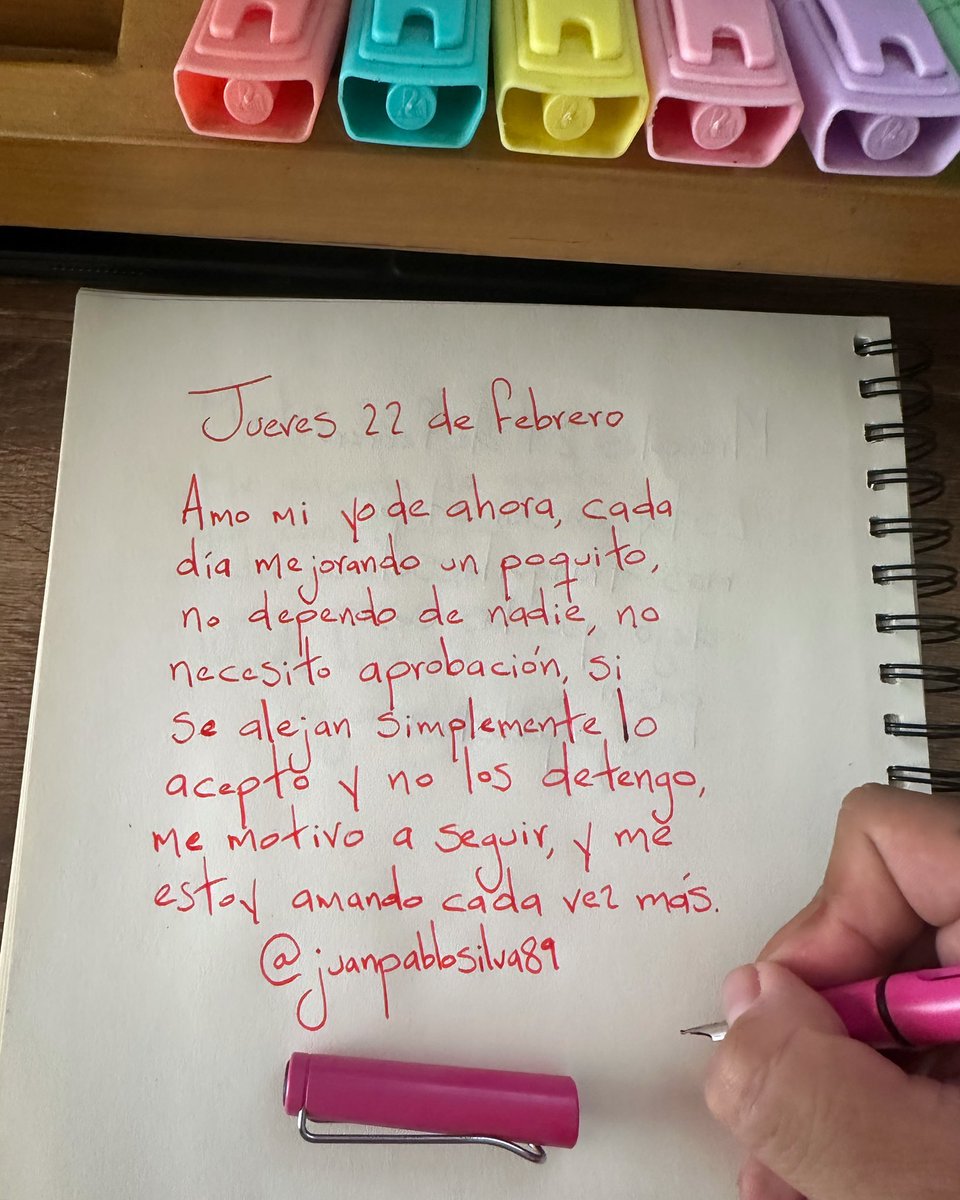 Jueves 22 de febrero
Amo mi yo de ahora, cada
día mejorando un poquito,
no dependo de nadie, no
necesito aprobación, si
se alejan simplemente lo
acepto y no los detengo,
me motivo a seguir, y me
estoy amando cada vez más.
@juanpablosilva89